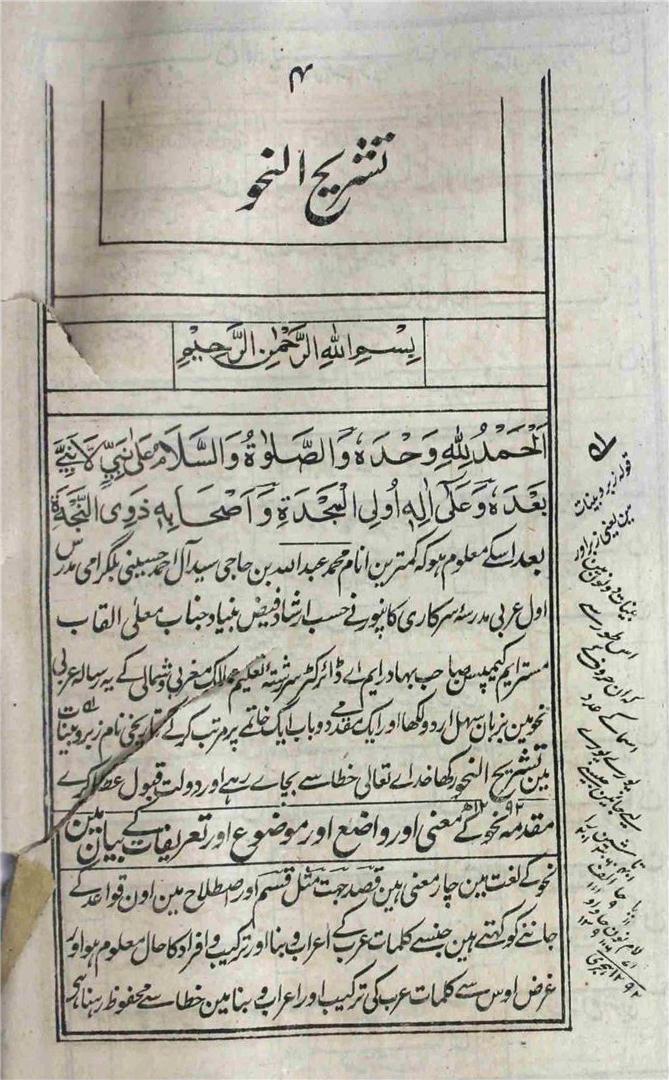 ۴
تشریح النحو
بِسْمِ اللهِ الرَّحْمٰنِ الرَّحِيْمِ
اَلْحَمْدُ لِلّٰهِ وَحْدَهٗ وَالصَّلٰوةُ وَالسَّلَامُ عَلٰى نَبِيٍّ لَا نَبِيَّ
بَعْدَهٗ وَعَلٰى اٰلِهٖ اُولِى الْمَجْدَةِ وَاَصْحَابِهٖ ذَوِى النَّجْدَةِ
بعد اسکے معلوم ہو کہ کمترین انام محمد عبد اللہ بن حاجی سید آل احمد حسینی بلگرامی مدرس
اول عربی مدرسۂ سرکاری کانپور نے حسب ارشاد فیض بنیاد جناب معلیٰ القاب
مسٹر ایم کیمپسن صاحب بہادر ایم اے ڈائرکٹر سررشتۂ تعلیم ممالک مغربی و شمالی کے یہ رسالہ عربی
نحو مین بزبان سہل اردو لکھا اور ایک مقدمے دو باب ایک خاتمے پر مرتب کرکے تاریخی نام زبر و بینات
مین تشریح النحو رکھا خداے تعالی خطا سے بچاے رہے اور دولت قبول عطا کرے
۱۲۹۲ھ
مقدمہ نحو کے معنی اور واضع اور موضوع اور تعریفات کے بیان مین
نحو کے لغت مین چار معنی ہین قصد جہت مثل قسم اور اصطلاح مین اون قواعد کے
جاننے کو کہتے ہین جنسے کلمات عرب کے اعراب و بنا اور ترکیب و افراد کا حال معلوم ہو اور
غرض اوس سے کلمات عرب کی ترکیب اور اعراب و بنا مین خطا سے محفوظ رہنا ہی
قولہ زبر و بینات
مین یعنی زبر اور
بینات دونون مین
اس طور سے
کہ ان حروف کے
اسما کے عدد
پورے پورے
لیے جائین جیسے
تا شین را
یا حا الف
لام نون حا واو
۱۲۹۲ ہجری